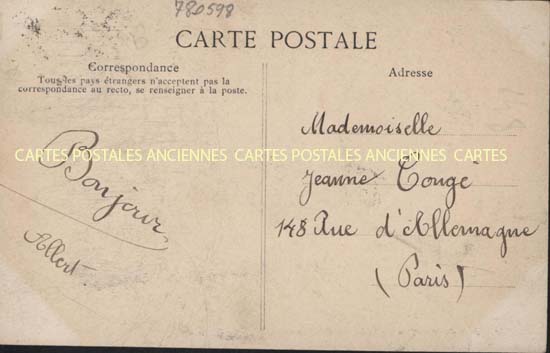 780598
CARTE POSTALE
Correspondance
Tous les pays étrangers n'acceptent pas la
correspondance au recto, se renseigner à la poste.
Bonjour
Albert
Adresse
Mademoiselle
Jeanne Tougé
148 Rue d'Allemagne
(Paris)
CARTES POSTALES ANCIENNES CARTES POSTALES ANCIENNES CARTES